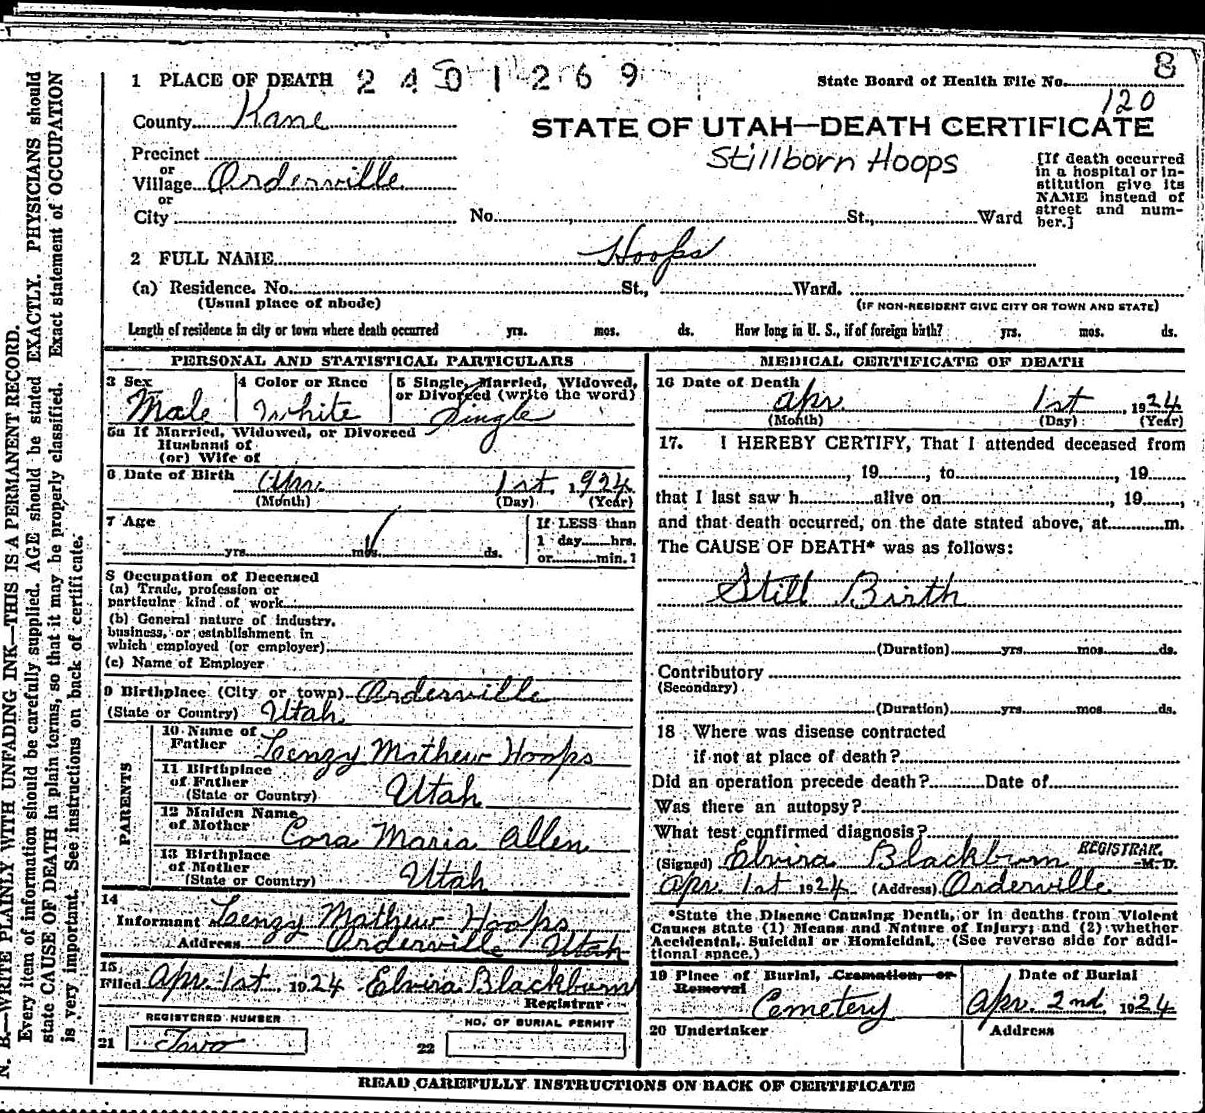 8
1 PLACE OF DEATH 2401269 State Board of Health File No.
120
County Kane
STATE OF UTAH—DEATH CERTIFICATE
Stillborn Hoops
Precinct
or
Village Orderville
or
City No. St., Ward
[If death occurred
in a hospital or in-
stitution give its
NAME instead of
street and num-
ber.]
2 FULL NAME Hoops
(a) Residence. No. St., Ward.
(Usual place of abode) (IF NON-RESIDENT GIVE CITY OR TOWN AND STATE)
Length of residence in city or town where death occurred yrs. mos. ds. How long in U. S., if of foreign birth? yrs. mos. ds.
PERSONAL AND STATISTICAL PARTICULARS
3 Sex
Male
4 Color or Race
White
5 Single, Married, Widowed,
or Divorced (write the word)
Single
5a If Married, Widowed, or Divorced
Husband of
(or) Wife of
6 Date of Birth Apr. 1st. 1924
(Month) (Day) (Year)
7 Age
yrs. mos. ds.
If LESS than
1 day hrs.
or min.
8 Occupation of Deceased
(a) Trade, profession or
particular kind of work
(b) General nature of industry,
business, or establishment in
which employed (or employer)
(c) Name of Employer
9 Birthplace (City or town) Orderville
(State or Country) Utah
PARENTS
10 Name of
Father Lenzy Mathew Hoops
11 Birthplace
of Father
(State or Country) Utah
12 Maiden Name
of Mother Cora Maria Allen
13 Birthplace
of Mother
(State or Country) Utah
14
Informant Lenzy Mathew Hoops
Address Orderville Utah
15
Filed Apr. 1st 1924 Elvira Blackburn
Registrar
REGISTERED NUMBER
21 Two
NO. OF BURIAL PERMIT
22
MEDICAL CERTIFICATE OF DEATH
16 Date of Death
Apr. 1st, 1924
(Month) (Day) (Year)
17. I HEREBY CERTIFY, That I attended deceased from
, 19 , to , 19
that I last saw h alive on , 19 ,
and that death occurred, on the date stated above, at m.
The CAUSE OF DEATH* was as follows:
Still Birth
(Duration) yrs. mos. ds.
Contributory
(Secondary)
(Duration) yrs. mos. ds.
18 Where was disease contracted
if not at place of death?
Did an operation precede death? Date of
Was there an autopsy?
What test confirmed diagnosis?
REGISTRAR.
(Signed) Elvira Blackburn M. D.
Apr. 1st 1924 (Address) Orderville
*State the Disease Causing Death, or in deaths from Violent
Causes state (1) Means and Nature of Injury; and (2) whether
Accidental, Suicidal or Homicidal. (See reverse side for addi-
tional space.)
19 Place of Burial, Cremation, or
Removal
Cemetery
Date of Burial
Apr. 2nd, 1924
20 Undertaker
Address
READ CAREFULLY INSTRUCTIONS ON BACK OF CERTIFICATE
N. B.—WRITE PLAINLY WITH UNFADING INK—THIS IS A PERMANENT RECORD.
Every item of information should be carefully supplied. AGE should be stated EXACTLY. PHYSICIANS should
state CAUSE OF DEATH in plain terms, so that it may be properly classified. Exact statement of OCCUPATION
is very important. See instructions on back of certificate.